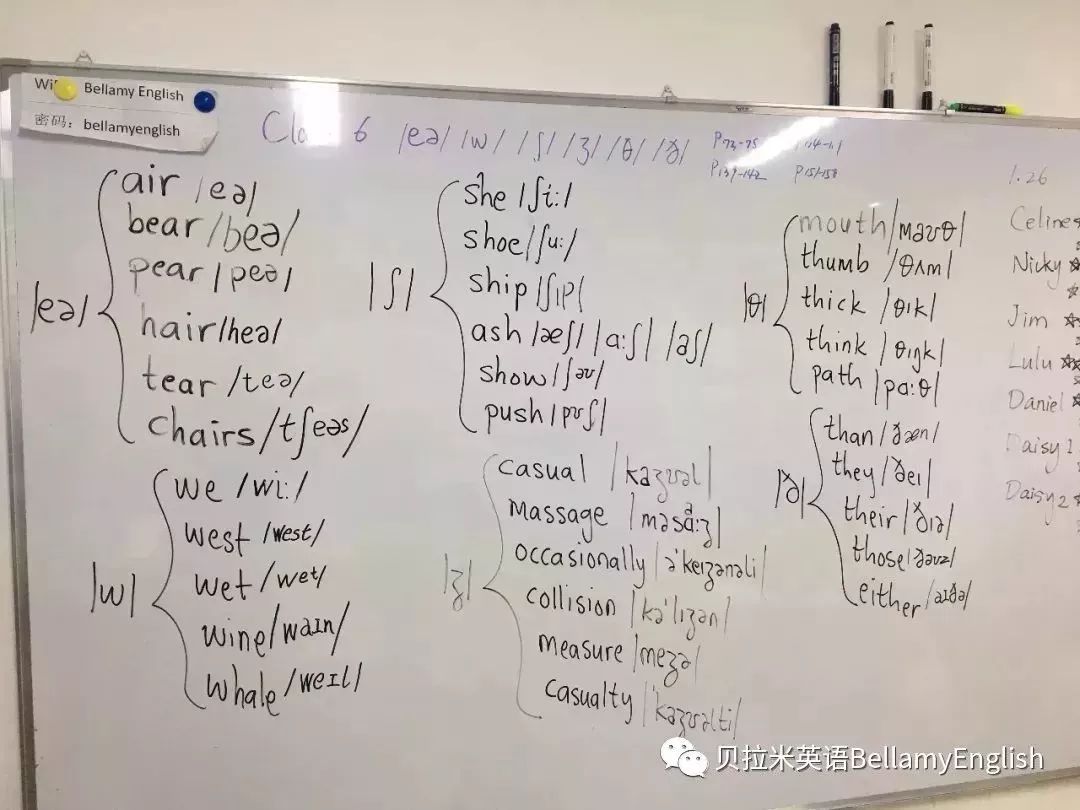 Bellamy English
密码: bellamyenglish
6 /eə/ /w/ /ʃ/ /ʒ/ /θ/ /ð/
P73-75
P139-142 P151-158
1.26
/eə/
air /eə/
bear /beə/
pear /peə/
hair /heə/
tear /teə/
chairs /tʃeəs/
/w/
we /wi:/
west /west/
wet /wet/
wine /waɪn/
whale /weɪl/
/ʃ/
she /ʃi:/
shoe /ʃu:/
ship /ʃɪp/
ash /æʃ/ /ɑ:ʃ/ /əʃ/
show /ʃəʊ/
push /pʊʃ/
/ʒ/
casual /kəʒʊəl/
massage /məsɑ:ʒ/
occasionally /ə'keɪʒənəli/
collision /kə'lɪʒən/
measure /meʒə/
casualty /'kəʒʊəlti/
/θ/
mouth /maʊθ/
thumb /θʌm/
thick /θɪk/
think /θɪŋk/
path /pɑ:θ/
/ð/
than /ðæn/
they /ðeɪ/
their /ðɪə/
those /ðəʊz/
either /aɪðə/
Celine
Nicky
Jim
Lulu
Daniel
Daisy 1
Daisy 2
贝拉米英语BellamyEnglish